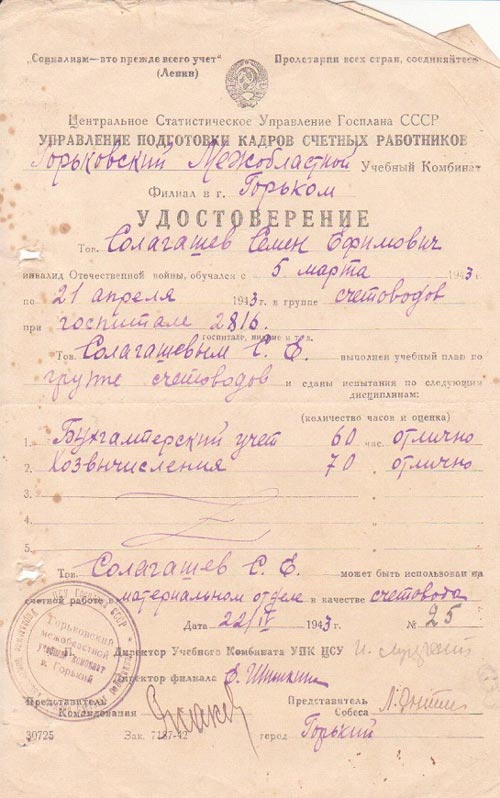 „Социализм—это прежде всего учет"
(Ленин)
Пролетарии всех стран, соединяйтесь
Центральное Статистическое Управление Госплана СССР
УПРАВЛЕНИЕ ПОДГОТОВКИ КАДРОВ СЧЕТНЫХ РАБОТНИКОВ
Горьковский Межобластной Учебный Комбинат
Филиал в г. Горьком
УДОСТОВЕРЕНИЕ
Тов. Солагашев Семен Ефимович
инвалид Отечественной войны, обучался с 5 марта 1943г.
по 21 апреля 1943г. в группе счетоводов
при госпитале 2816.
госпитале,
Тов. Солагашевым С. Е. выполнен учебный план по
группе счетоводов и сданы испытания по следующим
дисциплинам:
(количество часов и оценка)
1. Бухгалтерский учет 60 час. отлично
2. Хозвычисления 70 „ отлично
3. „
4. „
5. „
Тов. Солагашев С. Е. может быть использован на
счетной работе в материальном отделе в качестве счетовода
Дата 22/IV 1943г. № 25
Директор Учебного Комбината УПК ЦСУ
Директор филиала Ф. Шишкин
Представитель
Командования
Представитель
Собеса
30725 Зак. 7187-42 город Горький
Горьковский
межобластной
учебный комбинат
в. Горький